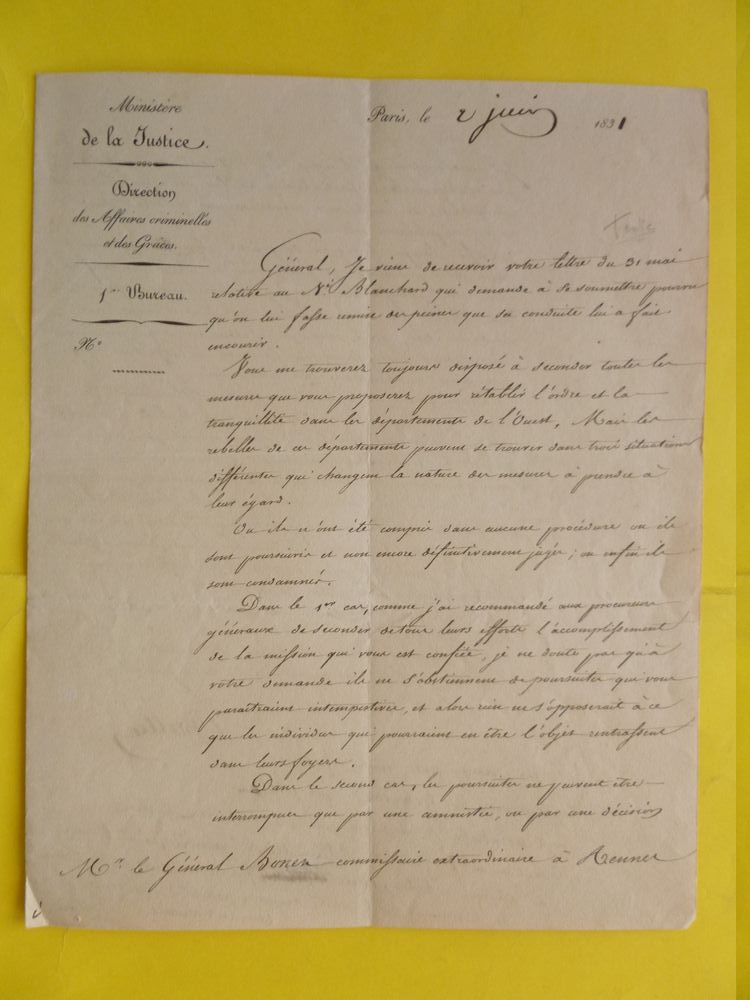 Ministère
de la Justice.
Direction
des Affaires criminelles
et des Grâces.
1er Bureau.
N°
Paris, le 2 juin 1831
Général, Je viens de recevoir votre lettre du 31 mai
relative au Né Blanchard qui demande à se soumettre pourvu
qu'on lui fasse remise des peines que sa conduite lui a fait
encourir.
Vous me trouverez toujours disposé à seconder toutes les
mesures que vous proposerez pour rétablir l'ordre et la
tranquillité dans les départements de l'Ouest. Mais les
rebelles de ces départements peuvent se trouver dans trois situations
différentes qui changent la nature des mesures à prendre à
leur égard.
Ou ils n'ont été compris dans aucune procédure ou ils
sont poursuivis et non encore définitivement jugés ; ou enfin ils
sont condamnés.
Dans le 1er cas, comme j'ai recommandé aux procureurs
généraux de seconder de tous leurs efforts l'accomplissement
de la mission qui vous est confiée, je ne doute pas qu'à
votre demande ils ne s'abstiennent de poursuites qui vous
paraîtraient intempestives, et alors rien ne s'opposerait à ce
que les individus qui pourraient en être l'objet rentrassent
dans leurs foyers.
Dans le second cas, les poursuites ne peuvent être
interrompues que par une amnistie, ou par une décision
Mr le Général Bonet commissaire extraordinaire à Rennes